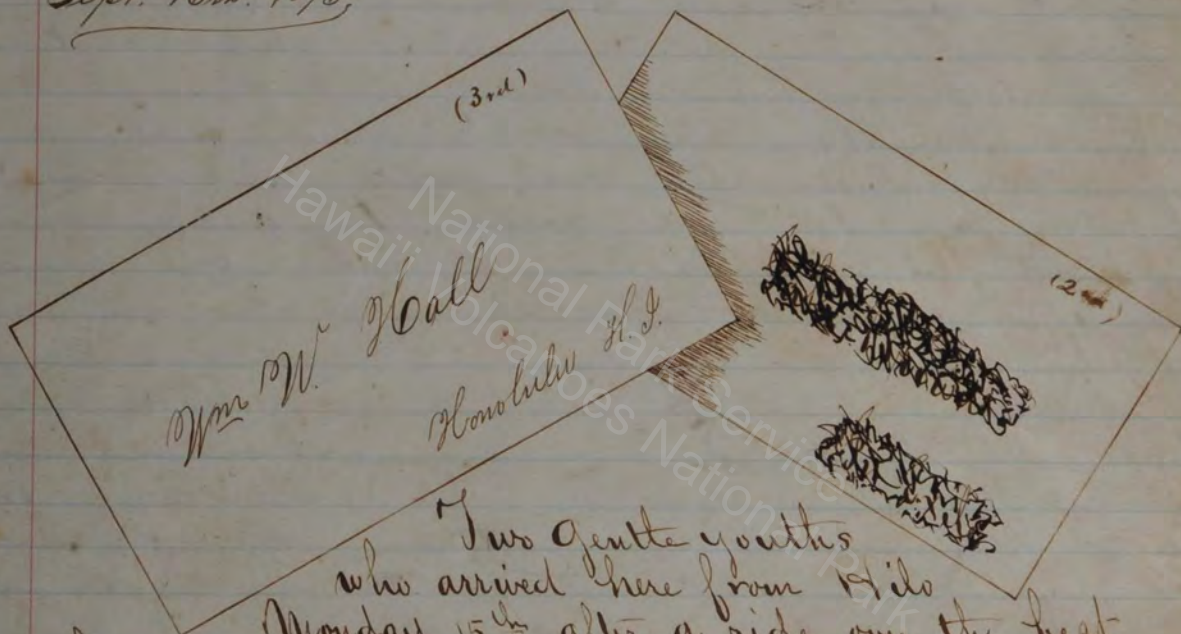 Sept. 1873.
(3rd)
(2nd)
Wm W. Hall
Honolulu H.I.
Two Gentle youths
who arrived here from Hilo
Monday 15th after a ride over the best
National Park Service
Hawai'i Volcanoes National Park